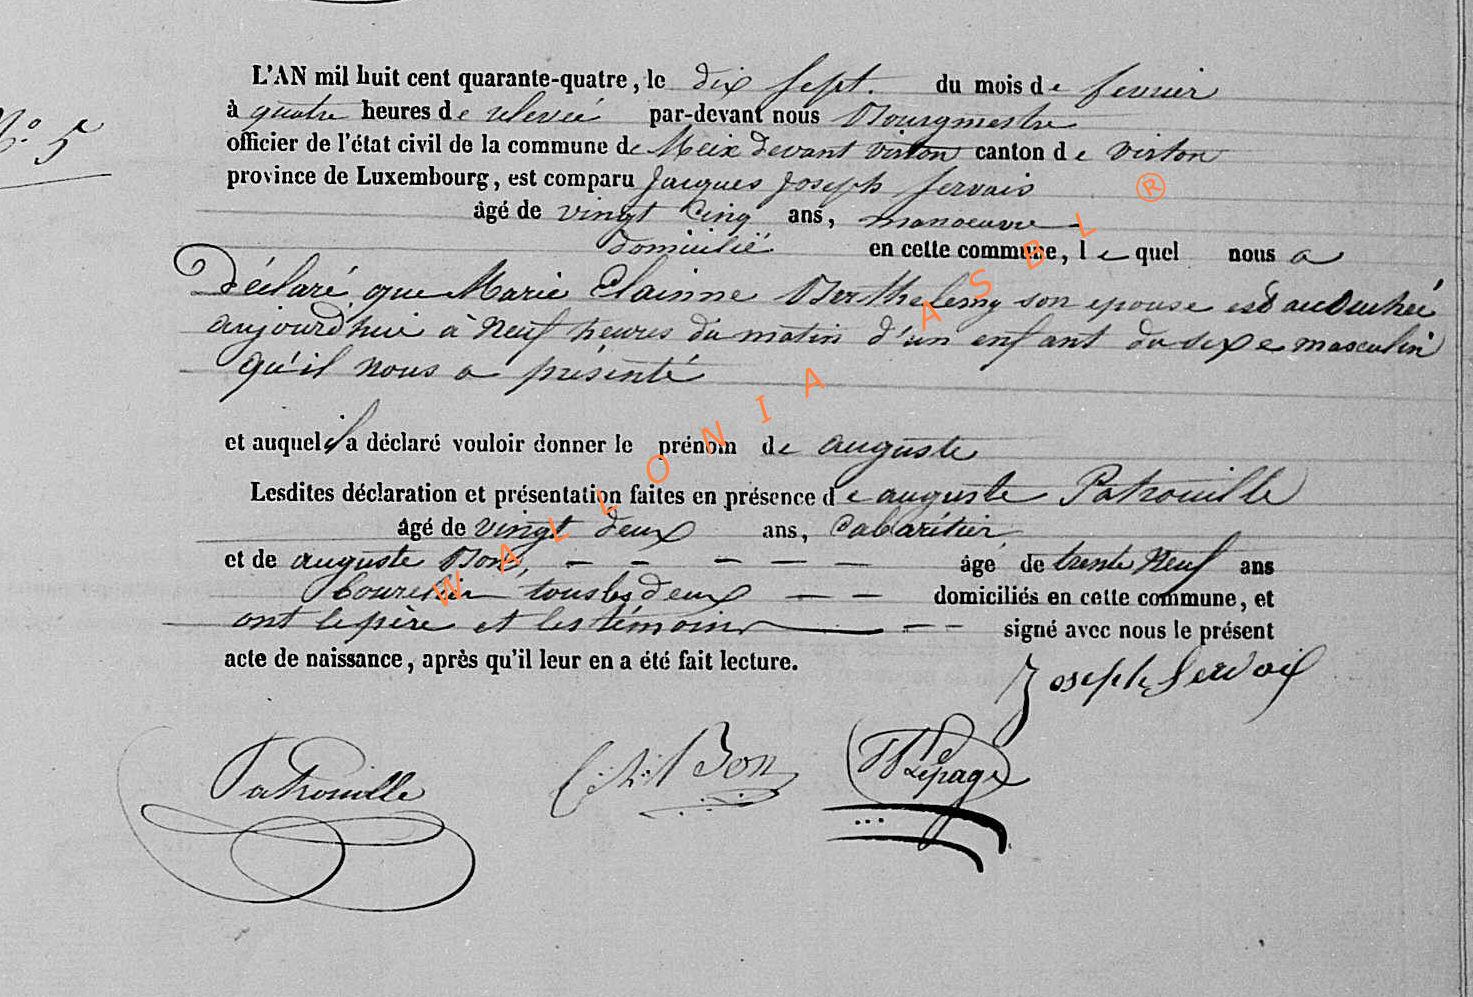 L'AN mil huit cent quarante-quatre, le dix sept. du mois de fevrier
N.° 5
à quatre heures de relevée par-devant nous Bourgmestre
officier de l'état civil de la commune de Meix devant virton canton de virton
province de Luxembourg, est comparu Jacques Joseph Servais
âgé de vingt Cinq ans, manoeuvre
domicilié en cette commune, lequel nous a
Déclaré que Marie Berthelemy son epouse est accouchée
aujourd'hui à Neuf heures du matin d'un enfant du sexe masculin
qu'il nous a présenté
et auquel il a déclaré vouloir donner le prénom de auguste
Lesdites déclaration et présentation faites en présence de auguste Patrouille
âgé de vingt deux ans, Cabarétier
et de auguste Bon, — — — — — âgé de trente Neuf ans
bourelier tous les deux — — domiciliés en cette commune, et
ont le père et les témoins — — signé avec nous le présent
acte de naissance, après qu'il leur en a été fait lecture.
Joseph Servais
Patrouille
Bon
Lepage
WALLONIA ASBL ®